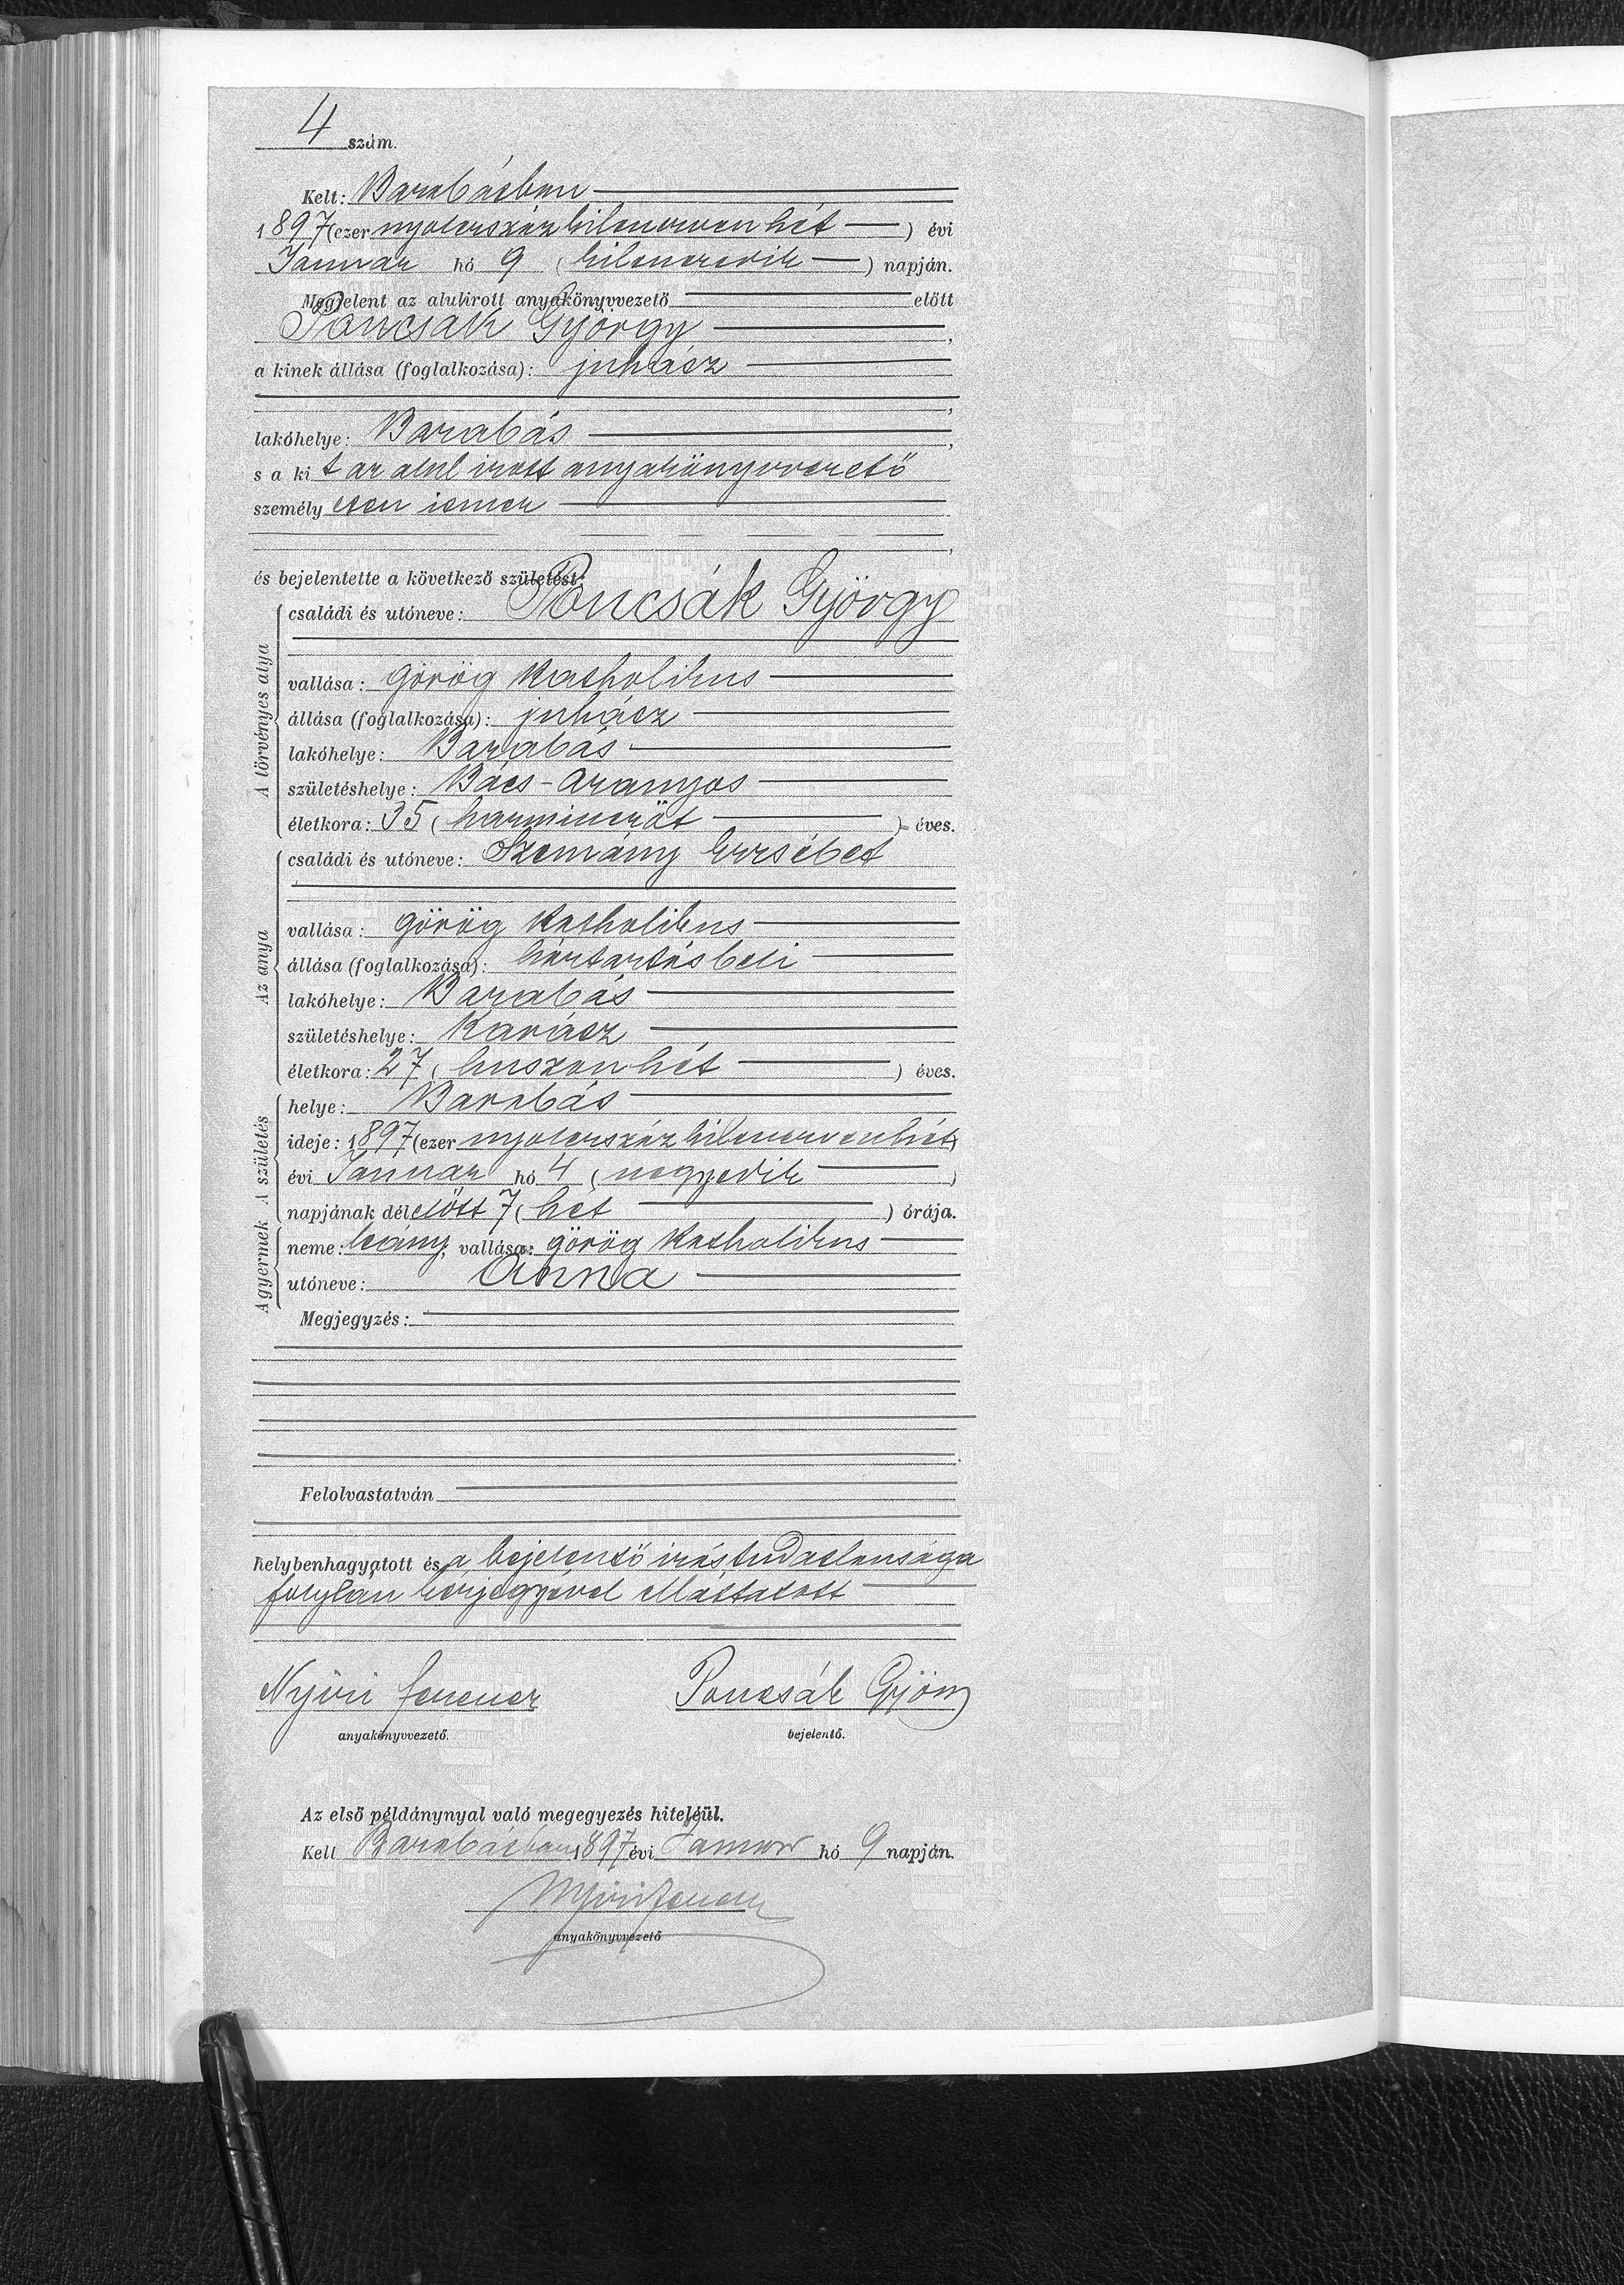 4 szám.
Kelt: Barabásban
1897 (ezer nyolczszáz kilenczven hét ) évi
Januar hó 9 ( kilenczedik ) napján.
Megjelent az alulirott anyakönyvvezető előtt
Poncsák György ,
a kinek állása (foglalkozása): juhász
,
lakóhelye: Barabás ,
s a ki t az alul irott anyakönyvvezető
személy esen ismer
,
és bejelentette a következő születést:
A törvényes atya
családi és utóneve: Poncsák György
vallása: görög katholikus
állása (foglalkozása): juhász
lakóhelye: Barabás
születéshelye: Bács-Aranyos
életkora: 35 ( harminczöt ) éves.
Az anya
családi és utóneve: Szemány Erzsébet
vallása: görög katholikus
állása (foglalkozása): háztartásbeli
lakóhelye: Barabás
születéshelye: Karász
életkora: 27 ( huszonhét ) éves.
A születés
helye: Barabás
ideje: 1897 (ezer nyolczszáz kilenczvenhét)
évi Januar hó 4 ( negyedik )
napjának délelőtt 7 ( hét ) órája.
A gyermek
neme: leány, vallása: görög katholikus
utóneve: Anna
Megjegyzés:
Felolvastatván
helybenhagyatott és a bejelentő irástudatlansága
folytán kézjegyével elláttatott
Nyiri Ferencz Poncsák György
anyakönyvvezető. bejelentő.
Az első példánynyal való megegyezés hiteléül.
Kelt Barabásban 1897 évi Januar hó 9 napján.
Nyiri Ferencz
anyakönyvvezető